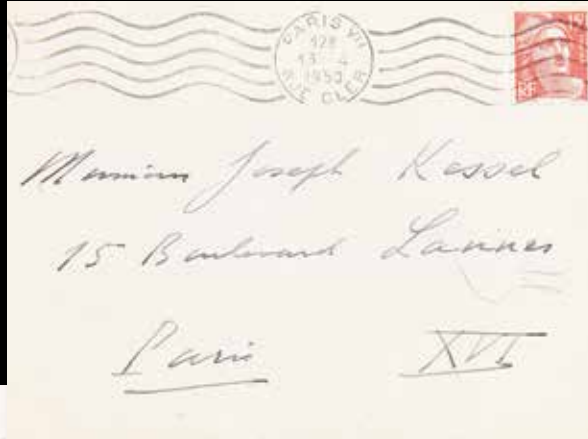 PARIS VII
13 - 4
1950
RUE CLER
RF
Monsieur Joseph Kessel
15 Boulevard Lannes
Paris XVI